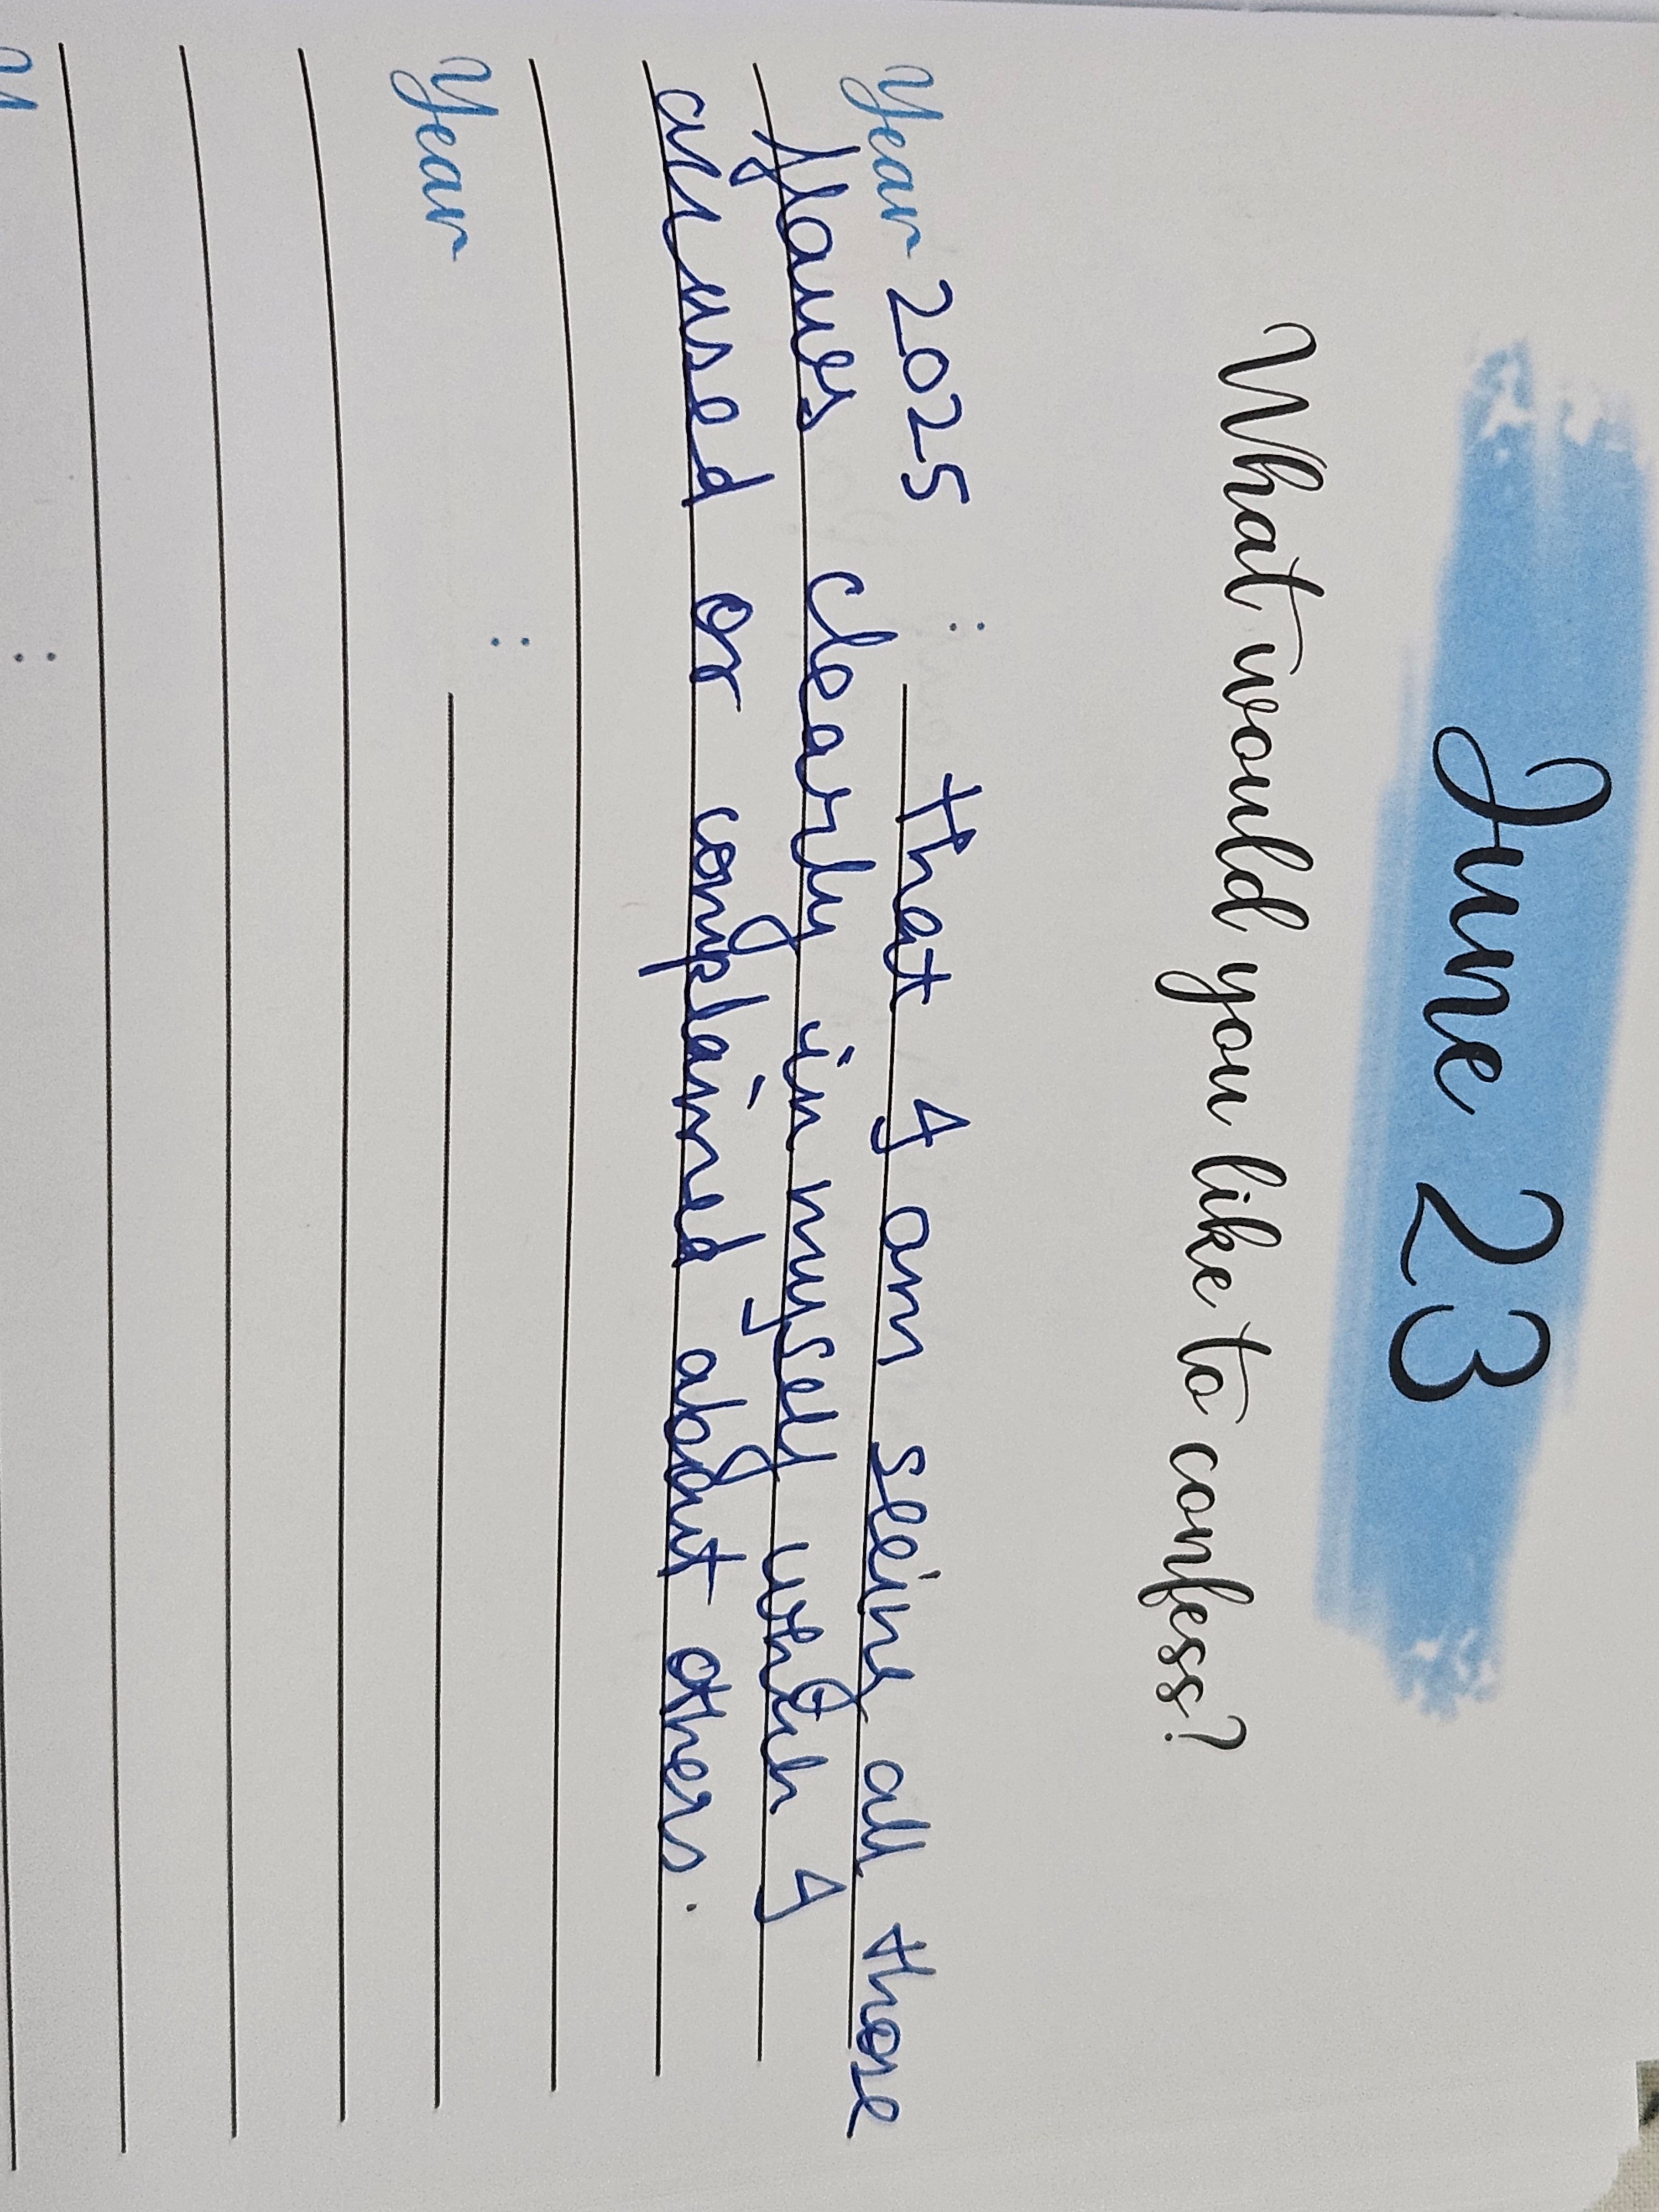 June 23
What would you like to confess?
Year 2025 : that I am seeing all those
flaws clearly in myself which I
accused or complained about others.
Year :
: